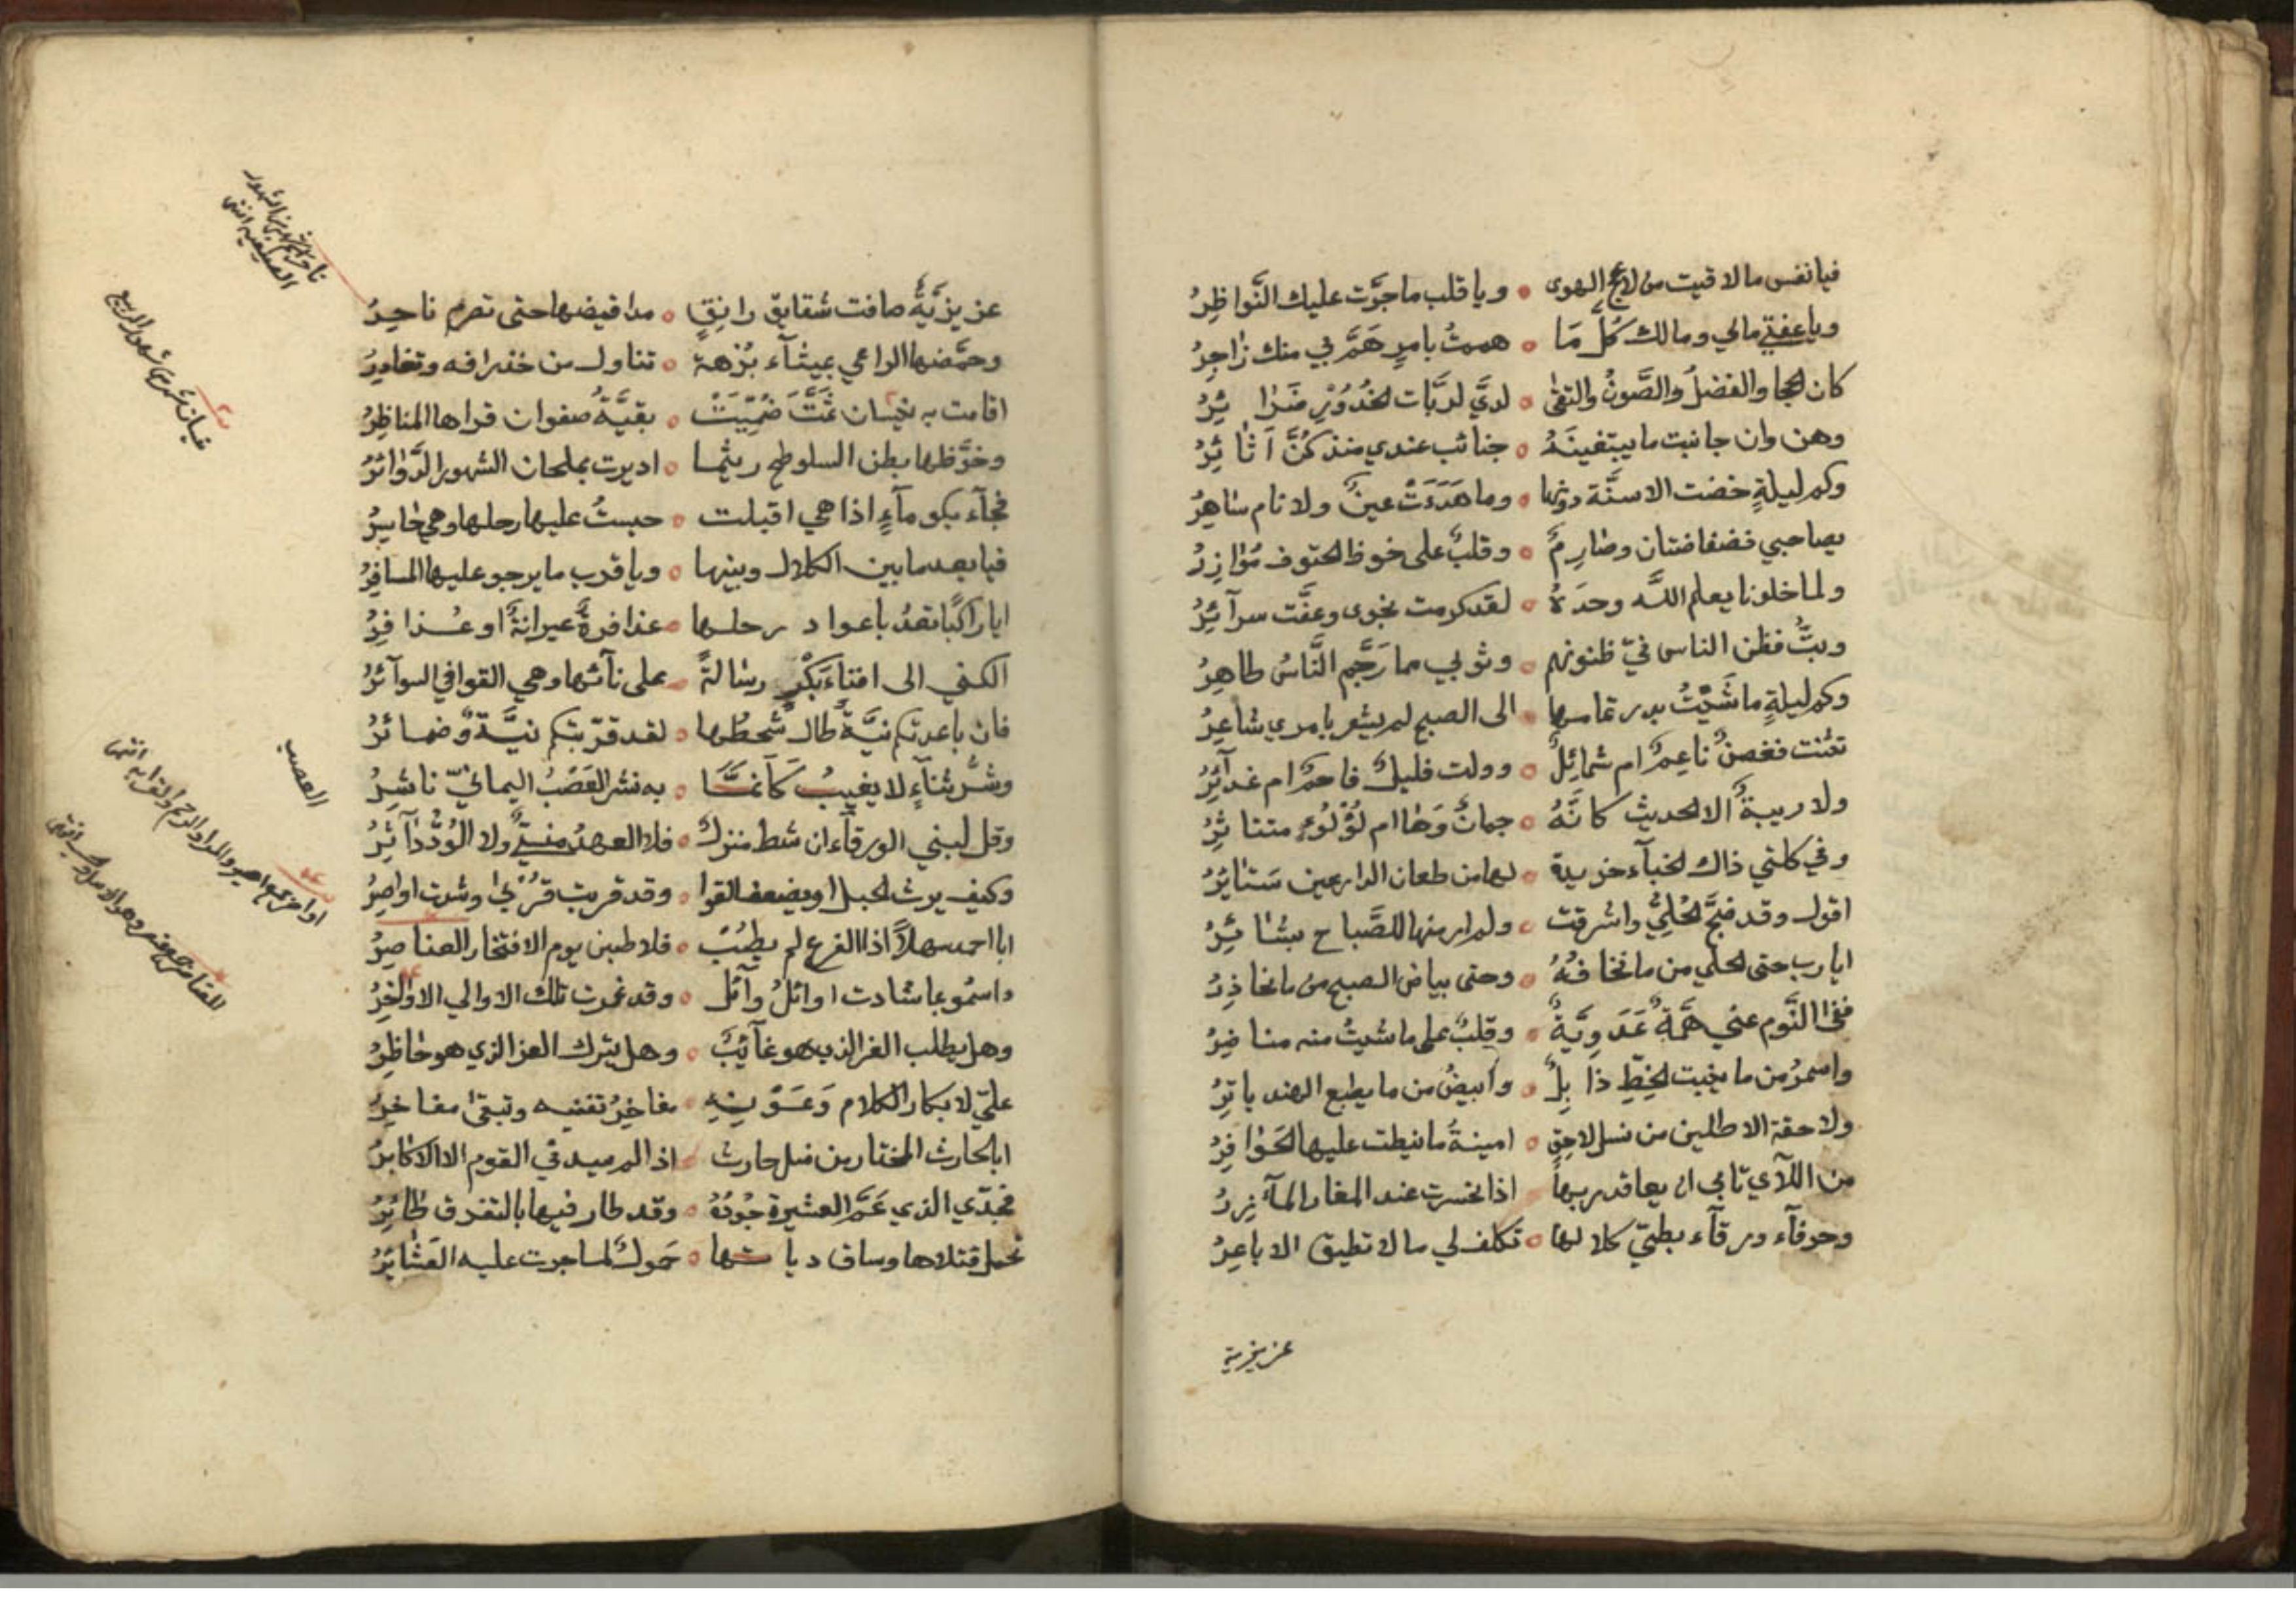 فيا نفس ما لاقيت من لاعج الهوى ۰ ويا قلب ما جرَّت عليك النَّواظِرُ
ويا عفتي مالي ومالك كُلَّ مَا ۰ هممتُ بامرٍ هَمَّ لي منك زٰاجِرُ
كان الحجا والفضلُ والصَّونُ والتقىٰ ۰ لديَّ لربَّات الخُدُوْرِ ضَرٰا ئِرُ
وهن وان جانبت ما يبتغينَهُ ۰ جنائب عندي منذ كُنَّ اَ ثٰا ئِرُ
وكم ليلةٍ خضت الاسنَّة دونها ۰ وما هَدَءَتْ عينٌ ولا نام سٰاهِرُ
يصاحبي فضفاضتان وصٰارِمٌ ۰ وقلبٌ على خوظ الحتوف مُوٰازِرُ
ولما خلونا يعلم اللَّه وحدَهُ ۰ لقد كرمت نجوى وعفَّت سرآئِرُ
وبتُّ فظن الناس فيّ ظنونهم ۰ وثوبي مما رَجَّم النَّاسُ طاهِرُ
وكم ليلةٍ ماشَيْتُ بدر تمامها ۰ الى الصبح لم يشعر بامري شاعِرُ
تثنت فغصنٌ ناعِمٌ ام شمائِلٌ ۰ وولت فليلٌ فاحمٌ ام غدآئِرُ
ولا ريبةٌ الا الحديث كانَّهُ ۰ جمانٌ وَهٰا ام لؤلُوءٍ متناثِرُ
وفي كلتي ذاك الخبآء خريدة ۰ لها من طعان الدارعين سَتٰائِرُ
اقول وقد ضجَّ الحُلِيُّ واشرقت ۰ ولم ار منها للصَّباح بشٰا ئِرُ
ايا رب حتى الحلي من ما نخافُهُ ۰ وحتى بياض الصبح من ما نحاذِرُ
نفى النَّوم عني هَمَّةٌ عَدَوِيَّةٌ ۰ وقلبٌ على ما شيتُ منه منا ضِرُ
واسمرُ من ما ينبت الخطِّ ذا بِلٌ ۰ وابيضُ من ما يطبع الهند باتِرُ
ولاحقة الاطلين من نسل لاحِقٍ ۰ امينةُ ما نيطت عليها الحَوٰا فِرُ
من اللآي تابى ان يعاقد ربها ۰ اذا نحسرت عند المغار المآ زِرُ
وحرفآء ورقآء بطيّ كلالها ۰ تكلف لي ما لا تطيق الا باعِرُ
عزيزية
عزيزيَّةٌ صافت شقايق رانِقٍ ۰ مدا قيضها حتى تصرم ناجِرُ
وحمَّضها الراعي بميثآء بُرْهة ۰ تناول من خذرافه وتغادِرُ
اقامت به نيسان ثمَّتَ ضُمِّنَتْ ۰ بقيَّةُ صفوان قراها المناظِرُ
وخوَّظها بطن السلوطح ريثما ۰ اديرت بملحان الشهور الدَّوٰائرُ
فجآء بكومآءٍ اذا هي اقبلت ۰ حبستُ عليها رحلها وهي حٰاسِرُ
فيا بعد ما بين الكلال وبينها ۰ ويا قرب ما يرجو عليها المسافِرُ
ايا راكبًا تغدُ باعواد رحلها ۰ عذافرةٌ عيرانةٌ او عُذافِرُ
الكني الى افناءَ بَكْرٍ رسٰالةً ۰ على نآئها وهي القوافي السوآئرُ
فان باعدتكم نيَّةٌ طال شَحطُها ۰ لقد قرّبتكم نيَّةٌ وضمائرُ
ونشرُ ثنآءٍ لا يغيبُ كَاَنمَّا ۰ به نشر العَصْبُ اليمانيّ ناشِرُ
وقل لبني الورقآء ان شط منزلٌ ۰ فلا العهدُ منسيٌّ ولا الوُدُّ دٰاثِرُ
وكيف يرث الحبل او يضعف القوا ۰ وقد قربت قُرْبٰى وشدت اواصِرُ
ابا احمد سهلاً اذا الفرع لم يطِبْ ۰ فلا طبن يوم الافتخار العناصِرُ
واسمُو بما شادت اوائلُ وآئل ۰ وقد غمرت تلك الاوالي الاوٰاخِرُ
وهل يطلب العز الذي هو غآئِبٌ ۰ وهل يترك العز الذي هو حٰاظِرُ
عليّ لابكار الكلام وَعَوْنِهِ ۰ مفاخِرُ تفنيه وتبقىٰ مفاخِرُ
ابا الحارث المختار من نسل حارث ۰ اذا لم يسد في القوم الا الاكابرُ
فجدّي الذي عَمَّ العشيرة جُودُهُ ۰ وقد طار فيها بالتفرق طٰائِرُ
تحمل قتلاها وساق دياتها ۰ حَمولٌ لما جرت عليه العَشٰائِرُ
العصب